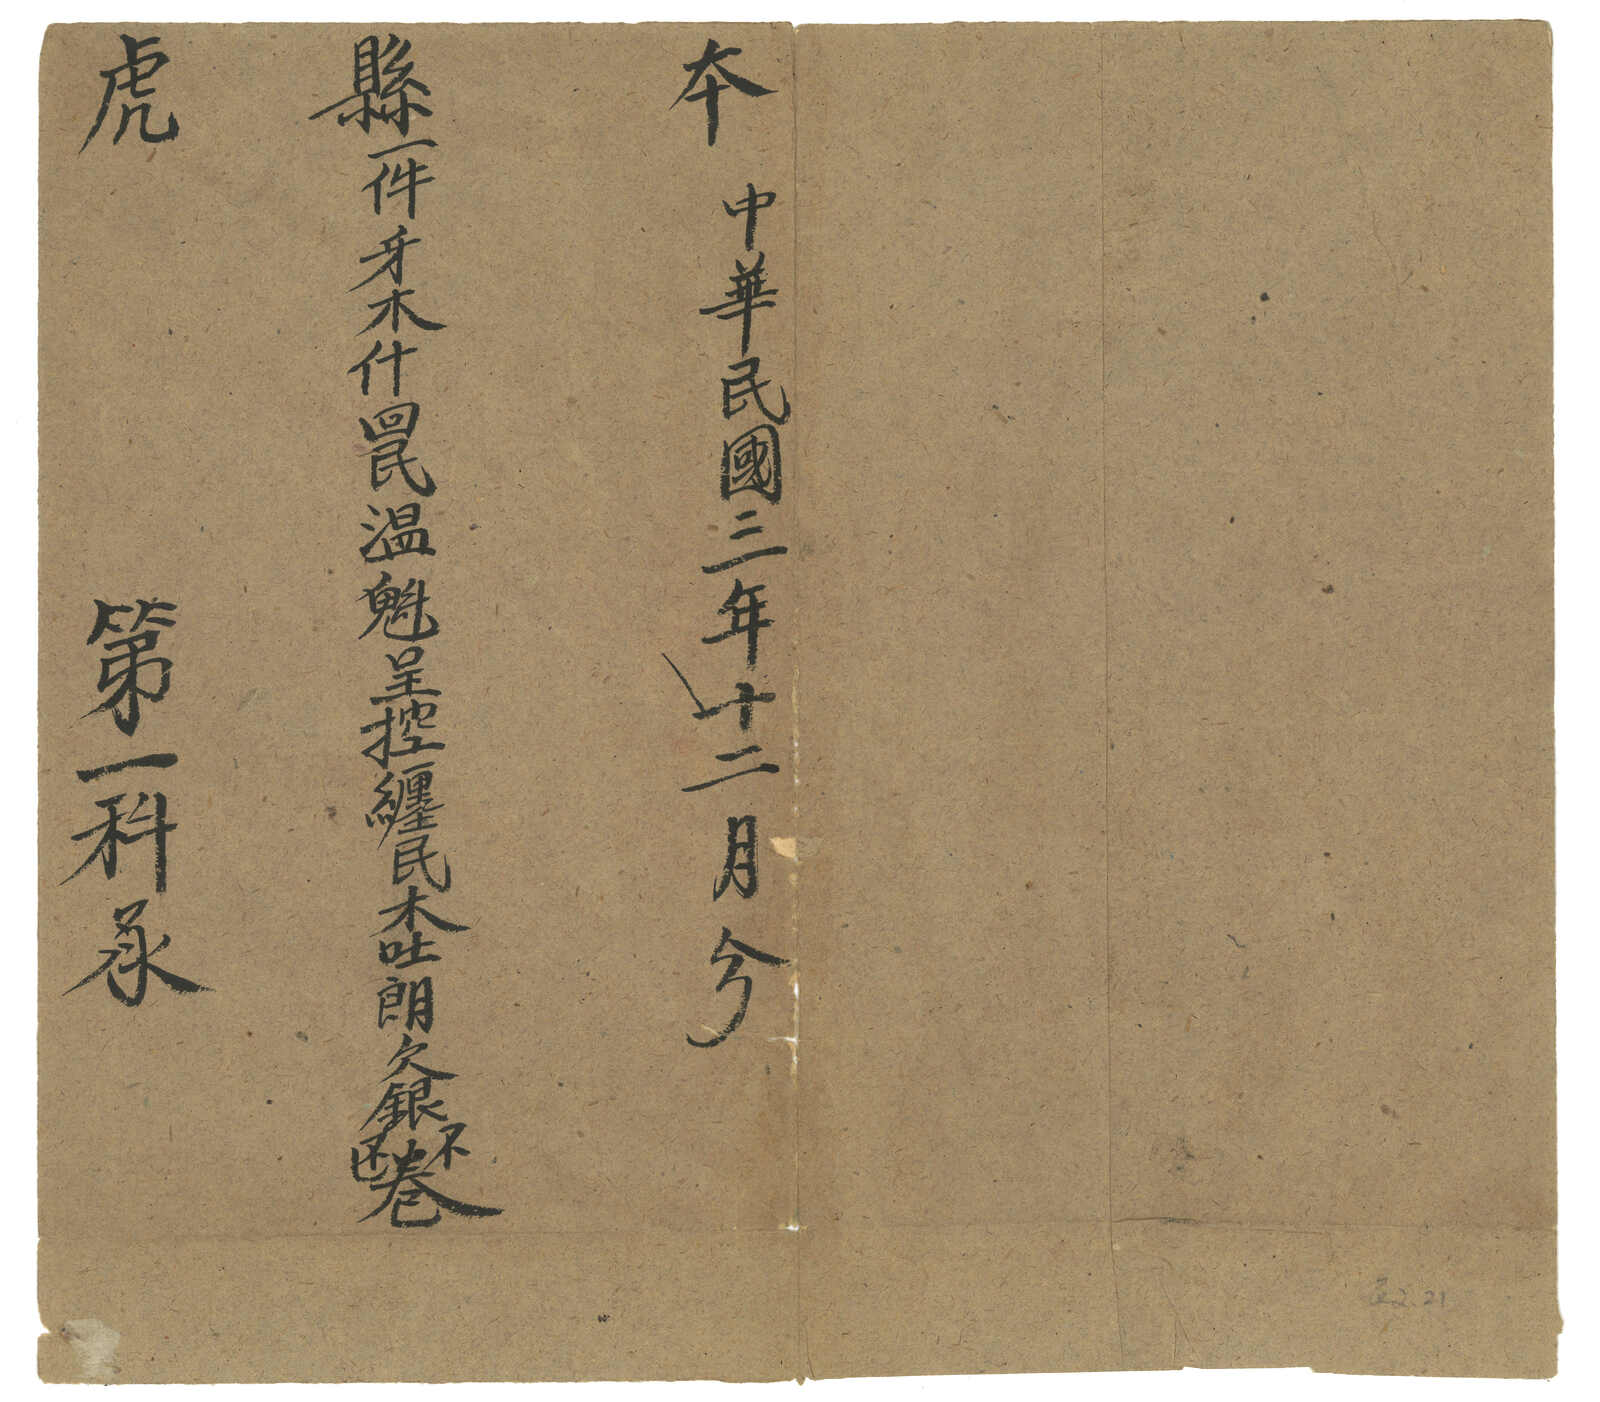 本
中華民國三年十二月分
縣一件牙木什回民温魁呈控纏民木吐朗欠銀不还卷
虎
第一科承
22.21